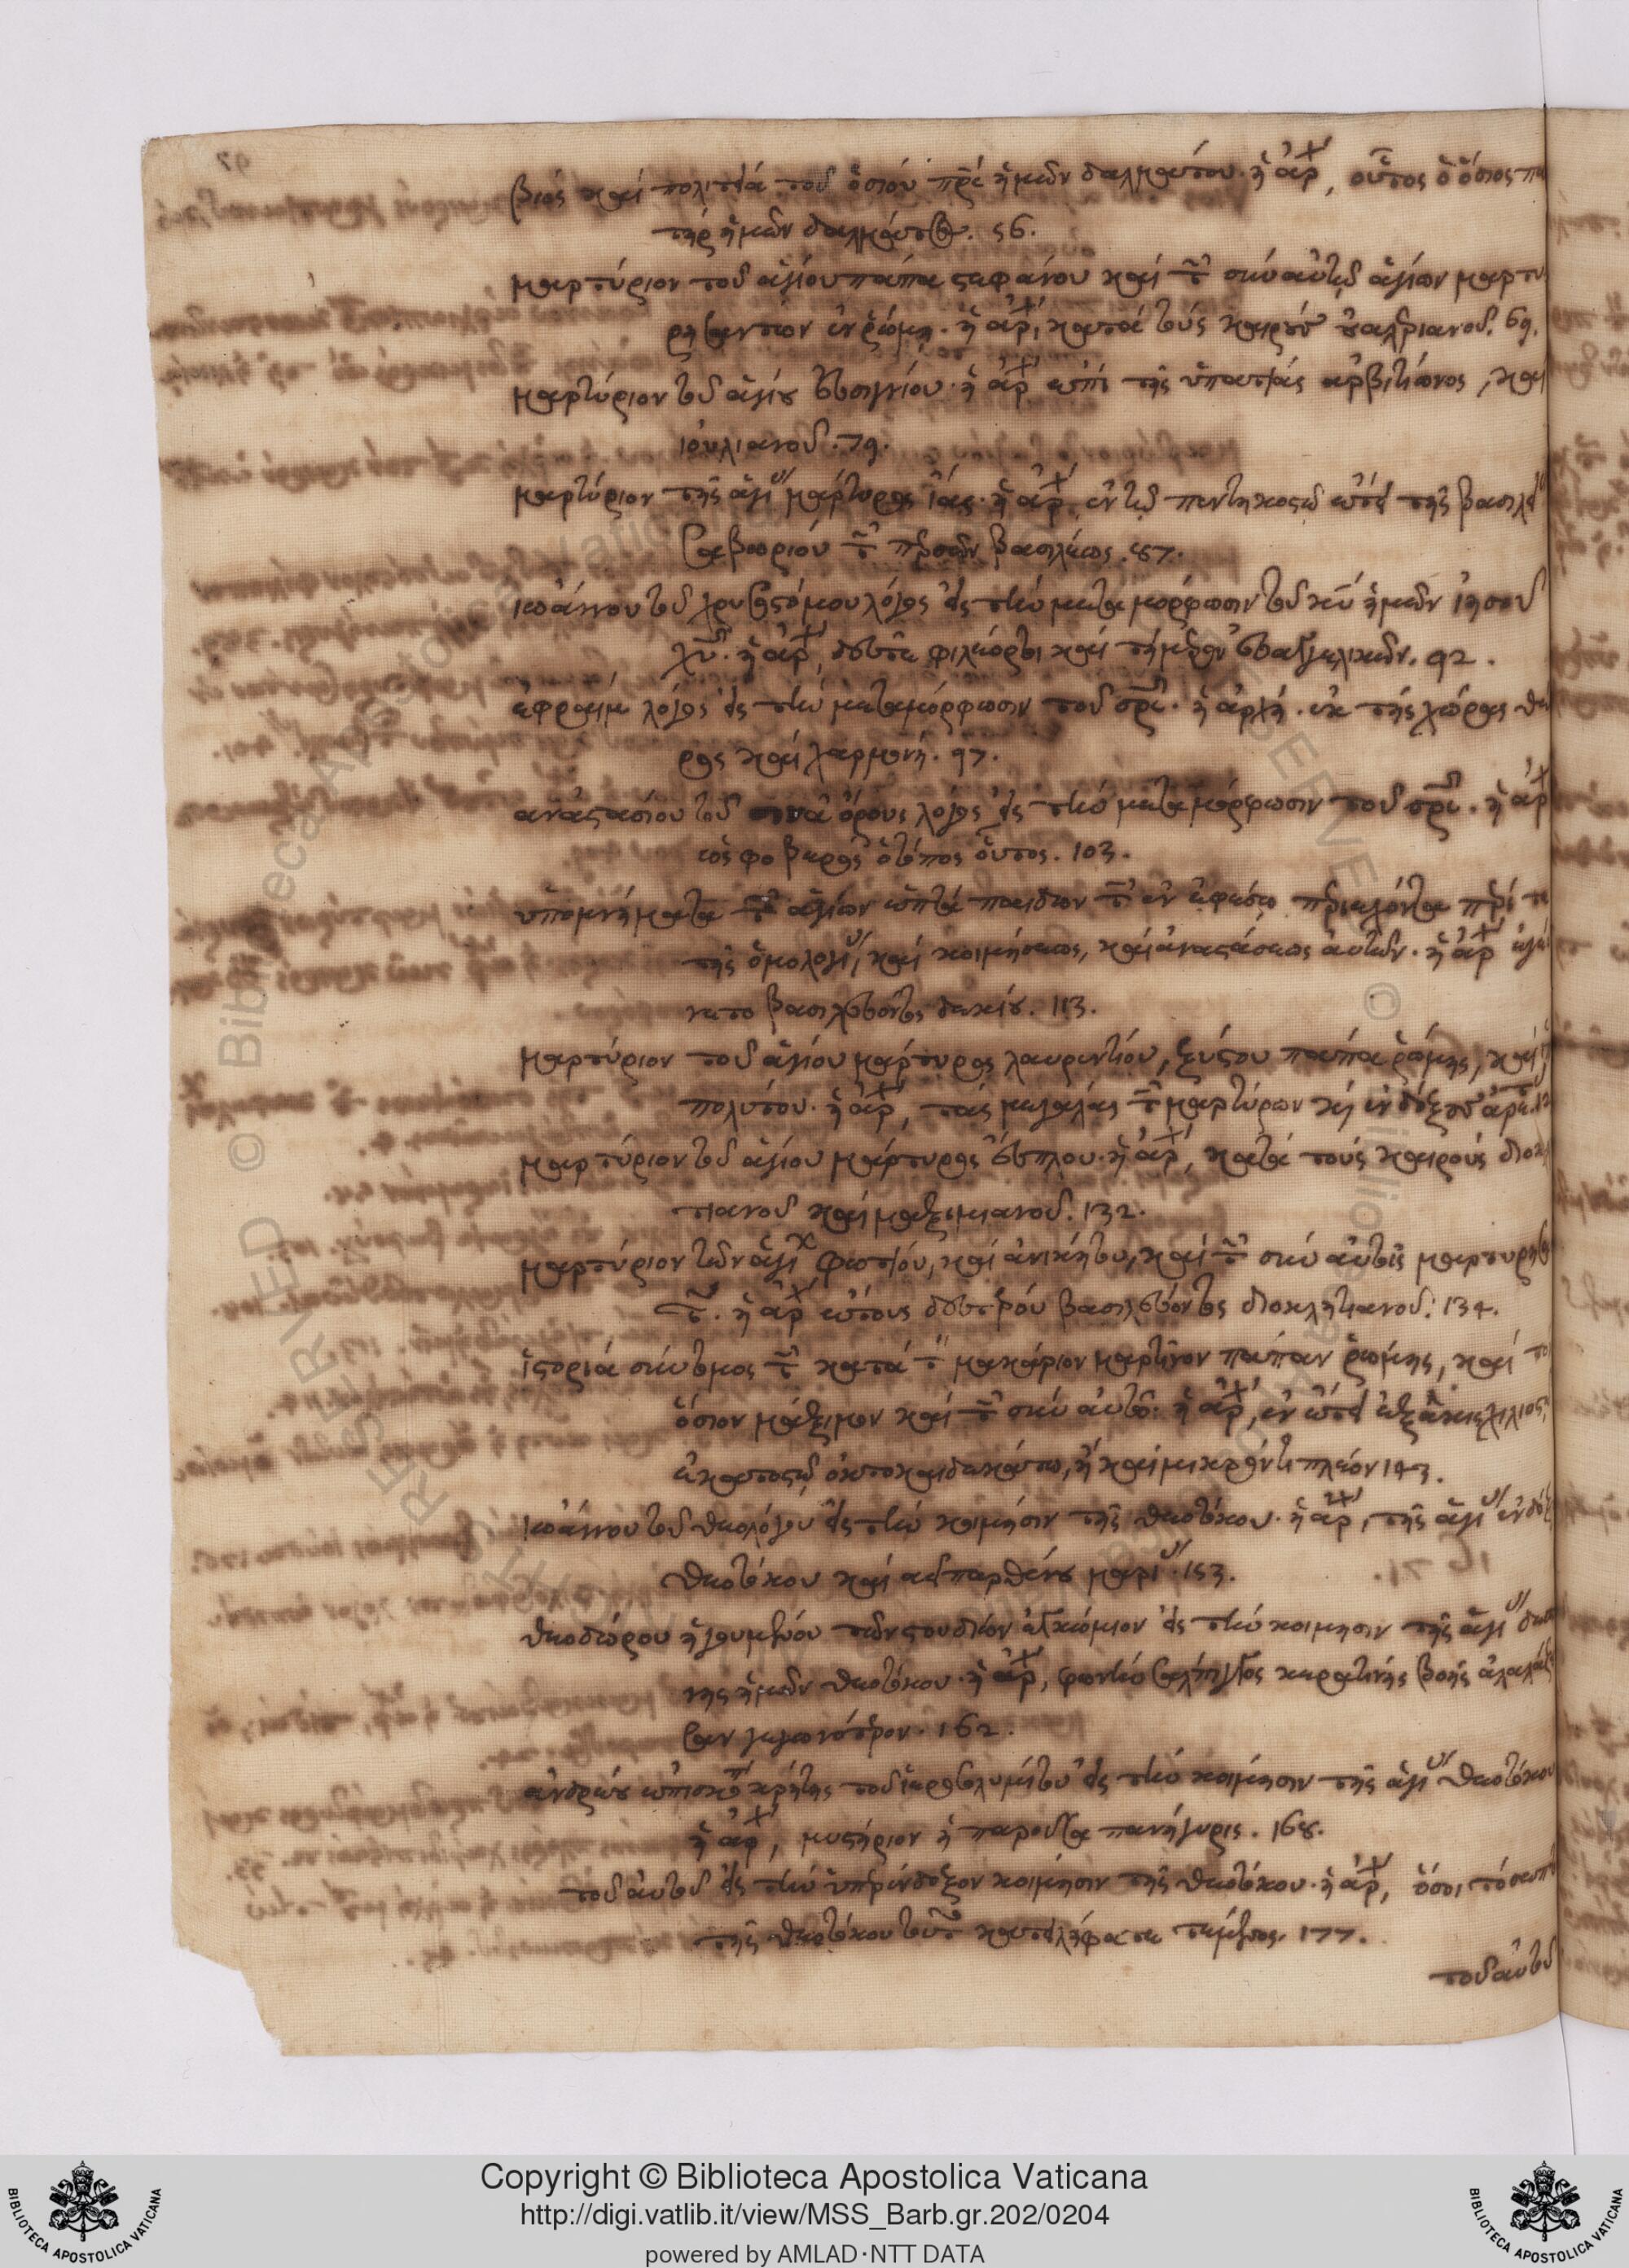 βίος καὶ πολιτεία τοῦ ὁσίου πρς ἡμῶν δαλμάτου. ἡ ἀρχ, οὗτος ὁ ὅσιος πα
τὴρ ἡμῶν δαλμάτος. 56.
μαρτύριον τοῦ ἁγίου πάπα στεφάνου καὶ τῶν σὺν αὐτῷ ἁγίων μαρτυ
ρησάντων ἐν ῥώμῃ. ἡ ἀρχ, κατὰ τοὺς καιροὺς 69.
μαρτύριον τοῦ ἁγίου εὐσιγνίου. ἡ ἀρχ ἐπὶ τῆς ὑπατείας ἀρβιτίωνος, καὶ
ἰουλιανοῦ. 79.
μαρτύριον τῆς ἁγί μάρτυρος ἴας. ἡ ἀρχ ἐν τῷ πεντηκοστῷ ἔτει τῆς βασιλεί
σαβωρίου τῶν περσῶν βασιλέως. 87.
ἰωάννου τοῦ χρυσοστόμου λόγος εἰς τὴν μεταμόρφωσιν τοῦ κυ ἡμῶν ἰησοῦ
χυ. ἡ ἀρχ, δεῦτε φιλέορτοι καὶ τήμερον εὐαγγελικῶν. 92.
ἐφραὶμ λόγος εἰς τὴν μεταμόρφωσιν τοῦ σρς. ἡ ἀρχή. ἐκ τῆς χώρας θέ
ρος καὶ χαρμονή. 97.
ἀναστασίου τοῦ σινᾶ ὄρους λόγος εἰς τὴν μεταμόρφωσιν τοῦ σρς. ἡ ἀρχ
ὡς φοβερὸς ὁ τόπος οὗτος. 103.
ὑπομνήματα τῶν ἁγίων ἑπτὰ παίδων τῶν ἐν ἐφέσῳ περιέχοντα περί τε
τῆς ὁμολογί, καὶ κοιμήσεως, καὶ ἀναστάσεως αὐτῶν. ἡ ἀρχ ἐγέ
νετο βασιλεύοντος δεκίου. 113.
μαρτύριον τοῦ ἁγίου μάρτυρος λαυρεντίου, ξύστου πάπα ῥώμης, καὶ ἱπ
πολύτου. ἡ ἀρχ, τὰς μεγάλας τῶν μαρτύρων καὶ ἐνδόξους ἀρετ. 12
μαρτύριον τοῦ ἁγίου μάρτυρος εὔπλου. ἡ ἀρχ, κατὰ τοὺς καιροὺς διοκλ
τιανοῦ καὶ μαξιμιανοῦ. 132.
μαρτύριον τῶν ἁγί φωτίου, καὶ ἀνικήτου, καὶ τῶν σὺν αὐτοῖς μαρτυρησ
τῶν. ἡ ἀρχ ἔτους δευτέρου βασιλεύοντος διοκλητιανοῦ. 134.
ἱστορία σύντομος τῶν κατὰ τὸν μακάριον μαρτῖνον πάπαν ῥώμης, καὶ τὸ
ὅσιον μάξιμον καὶ τῶν σὺν αὐτῷ. ἡ ἀρχ, ἐν ἔτει ἑξακισχιλιοσ
ἑκατοστῷ ὀκτωκαιδεκάτῳ, ἢ καὶ μικρόν τι πλέον 143.
ἰωάννου τοῦ θεολόγου εἰς τὴν κοίμησιν τῆς θεοτόκου. ἡ ἀρχ, τῆς ἁγί ἐνδόξ
θεοτόκου καὶ ἀειπαρθένου μαρί. 153.
θεοδώρου ἡγουμένου τῶν στουδίων ἐγκώμιον εἰς τὴν κοίμησιν τῆς ἁγί δεσποί
νης ἡμῶν θεοτόκου. ἡ ἀρχ, φωνὴν σάλπιγγος κερατίνης βοῆς ἀλαλάζ
σαν γεγωνότερον. 162.
ἀνδρέου ἐπισκόπ κρήτης τοῦ ἱεροσολυμίτου εἰς τὴν κοίμησιν τῆς ἁγί θεοτόκου
ἡ ἀρχ, μυστήριον ἡ παροῦσα πανήγυρις. 168.
τοῦ αὐτοῦ εἰς τὴν ὑπερένδοξον κοίμησιν τῆς θεοτόκου. ἡ ἀρχ, ὅσοι, τὸ σεπτὸ
τῆς θεοτόκου τοῦτο κατειλήφατε τέμενος. 177.
τοῦ αὐτοῦ
Copyright © Biblioteca Apostolica Vaticana
http://digi.vatlib.it/view/MSS_Barb.gr.202/0204
powered by AMLAD·NTT DATA